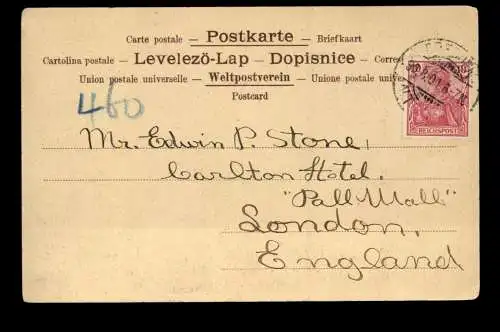 Carte postale – Postkarte – Briefkaart
Cartolina postale – Levelezö-Lap – Dopisnice –
Union postale universelle – Weltpostverein – Unione postale
Postcard
460
Mr. Edwin P. Stone,
Carlton Hotel.
"Pall Mall"
London,
England
REICHSPOST